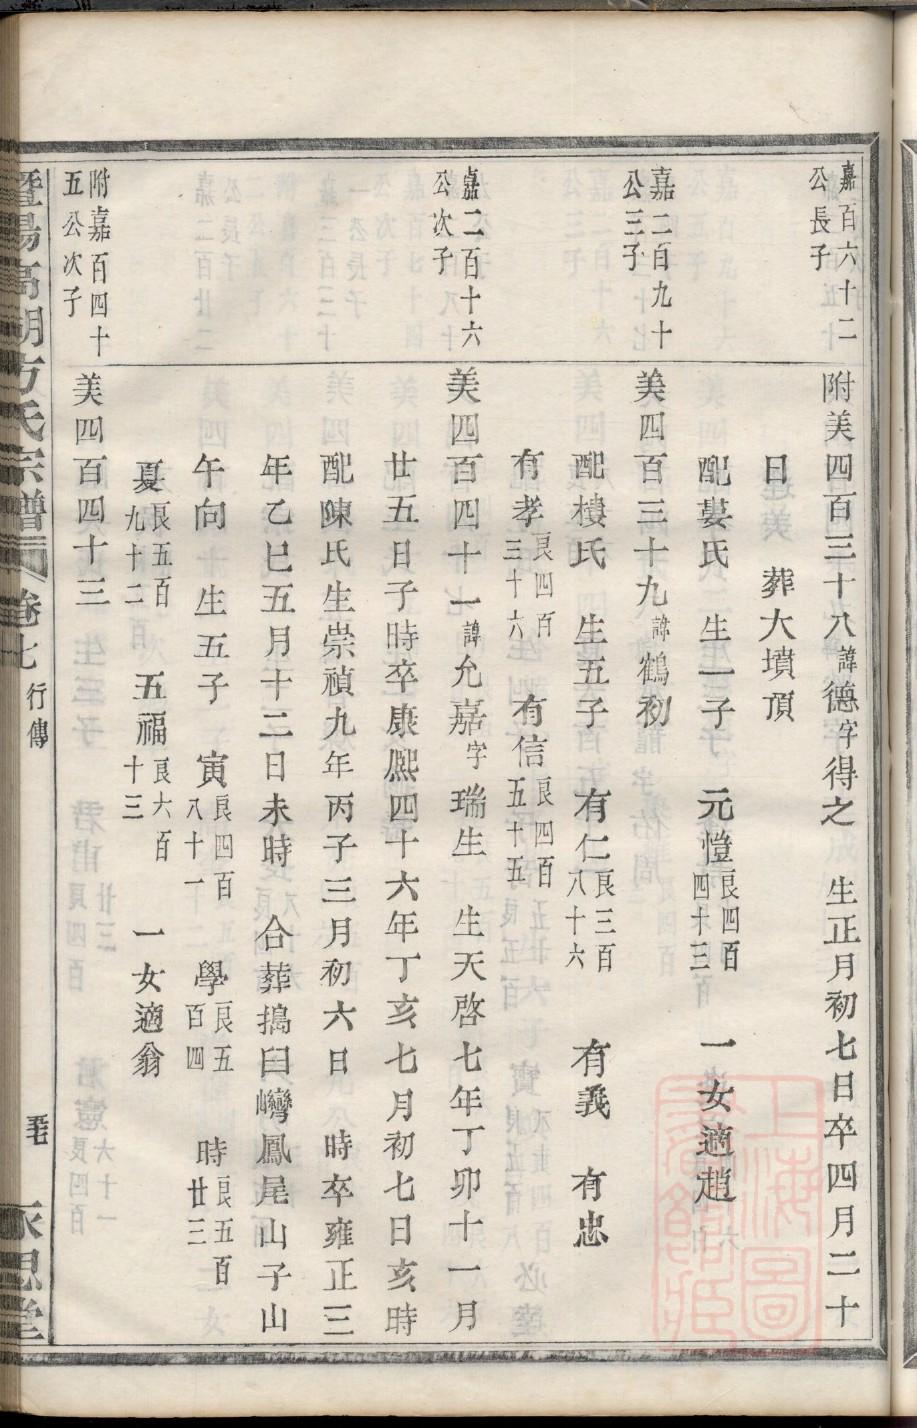 嘉百六十二
公長子
附美四百三十八諱德字得之 生正月初七日卒四月二十
日 葬大墳頂
配婁氏 生一子 元愷良四百四十三 一女適趙
嘉二百九十
公三子
美四百三十九諱鶴初
配樓氏 生五子 有仁良三百八十六 有義 有忠
有孝良四百三十六 有信良四百五十五
嘉二百十六
公次子
美四百四十一諱允嘉字瑞生 生天啓七年丁卯十一月
廿五日子時卒康熈四十六年丁亥七月初七日亥時
配陳氏生崇禎九年丙子三月初六日 時卒雍正三
年乙巳五月十二日未時 合葬搗臼巒鳳尾山子山
午向 生五子 寅良四百八十一 學良五百四 時良五百廿三
夏良五百九十二 五福良六百十三 一女適翁
附嘉百四十
五公次子
美四百四十三
暨陽高湖方氏宗譜 卷七 行傳 永思堂
上海圖書館藏